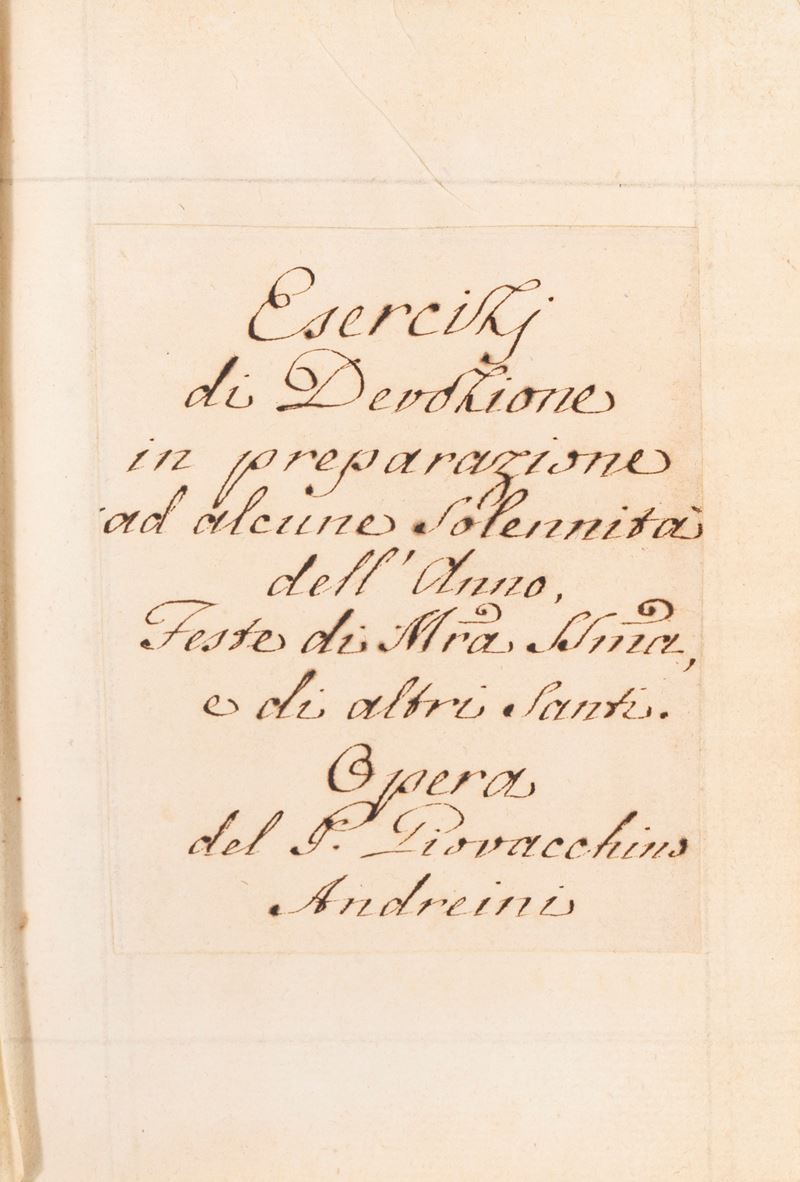 Esercizj
di Devozione
in preparazione
ad alcune Solennità
dell' Anno,
Feste di Mrã SSmã,
e di altri Santi.
Opera
del P. Giovacchino
Andreini